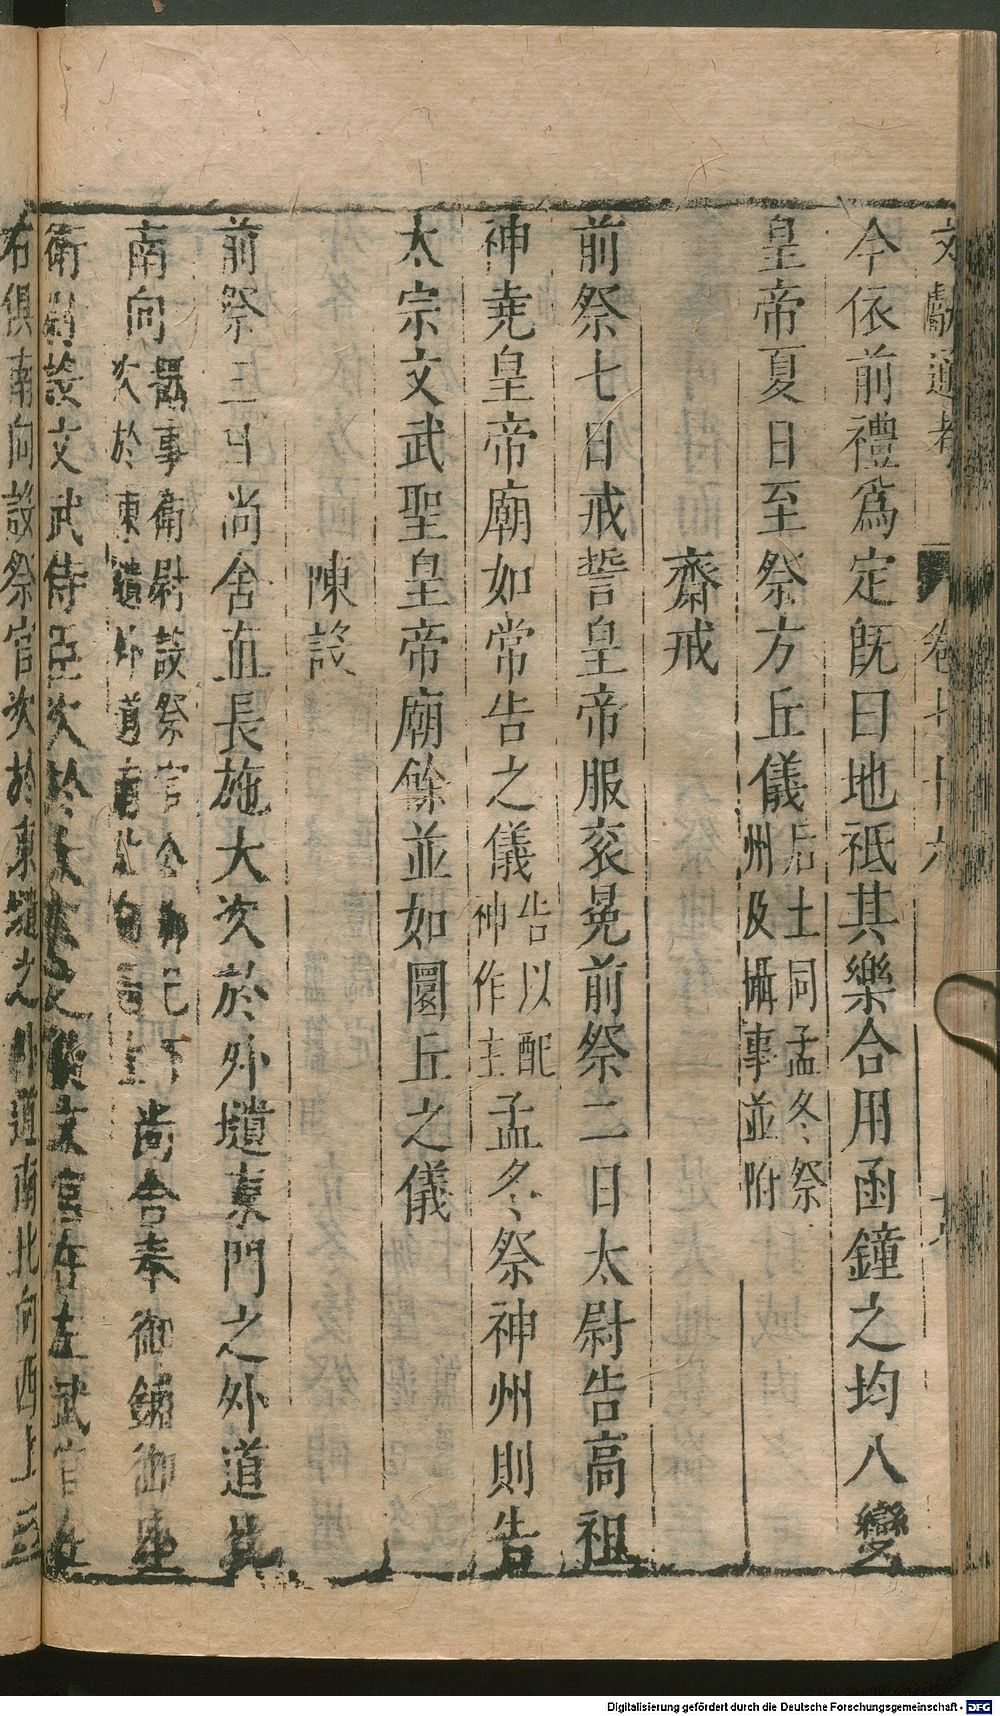 文獻通考 卷七十六
今依前禮爲定旣曰地祇其樂合用函鐘之均八變
皇帝夏日至祭方丘儀后土同孟冬祭
州及攝事並附
齋戒
前祭七日戒誓皇帝服袞冕前祭二日太尉告高祖
神堯皇帝廟如常告之儀告以配
神作主孟冬祭神州則告
太宗文武聖皇帝廟餘並如圜丘之儀
陳設
前祭三日尚舍直長施大次於外壝東門之外道北
南向攝事衛尉設祭官公卿已下
次於東壝外道南北向西上尚舍奉御鋪御座
衛尉設文武侍臣次於大次之後文官在左武官在
右俱南向設祭官次於東壝之外道南北向西上三
Digitalisierung gefördert durch die Deutsche Forschungsgemeinschaft - DFG